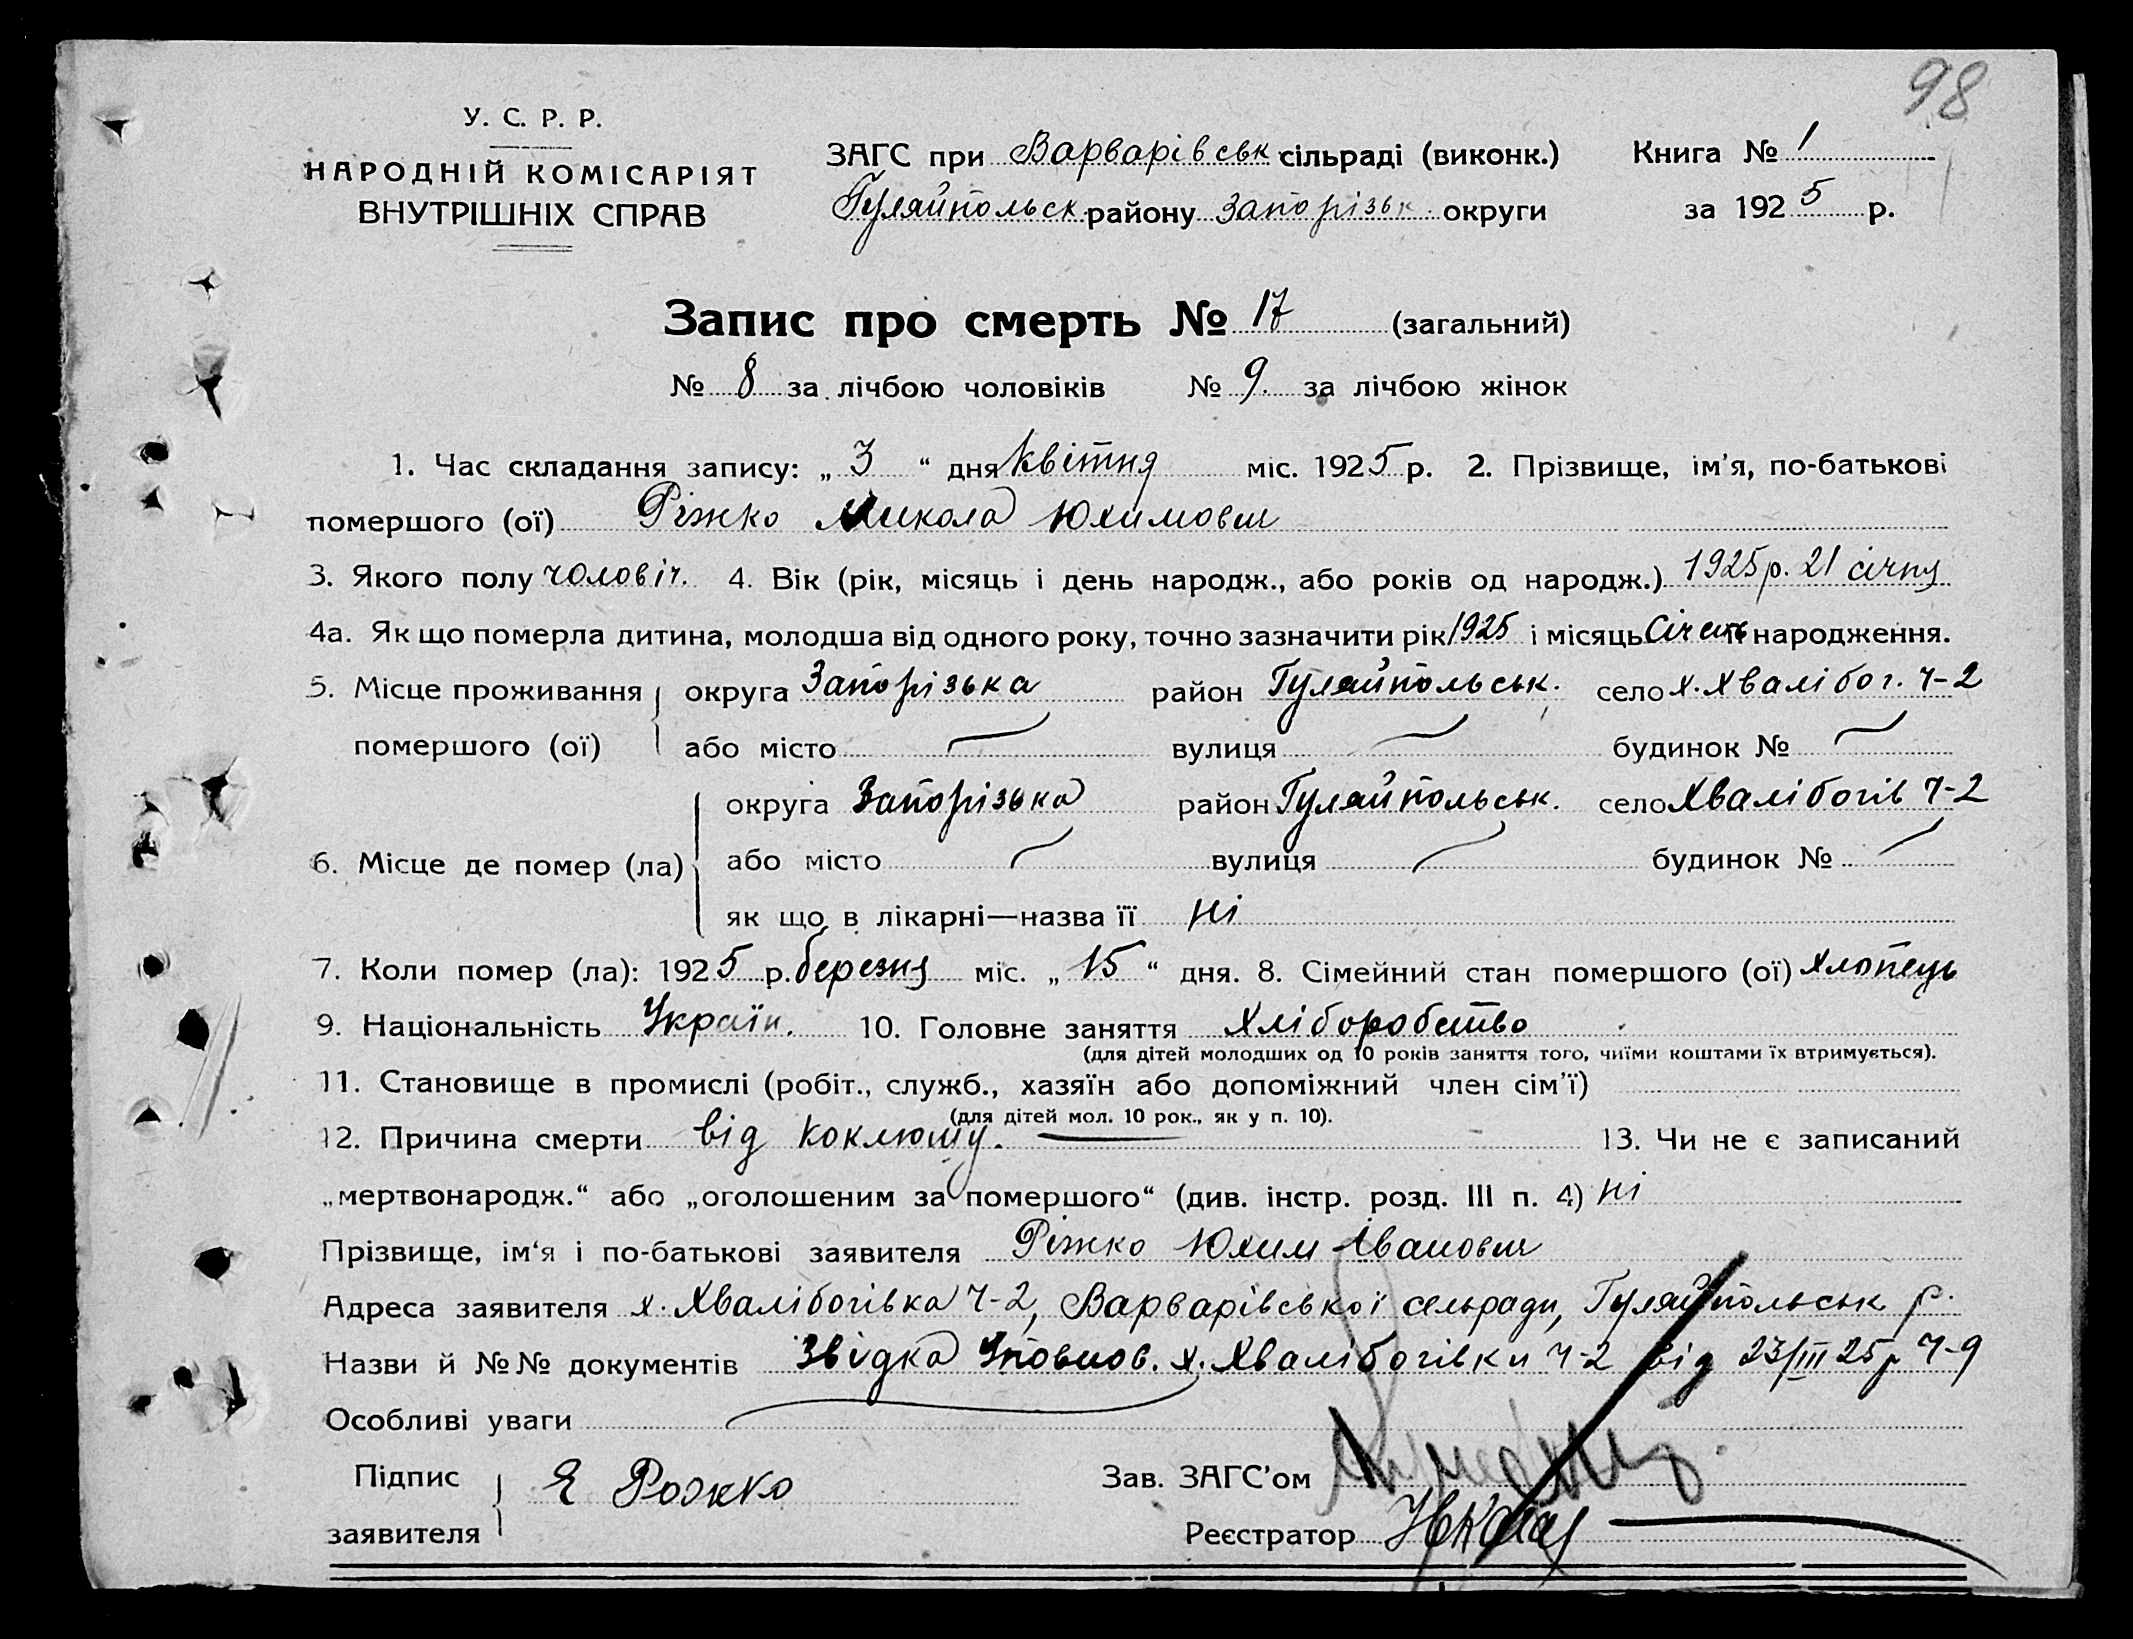 98
У. С. Р. Р.
НАРОДНІЙ КОМІСАРІЯТ
ВНУТРІШНІХ СПРАВ
ЗАГС при Варварівськ сільраді (виконк.)
Гуляйпольск. району Запорізьк. округи
Книга № 1
за 1925 р.
Запис про смерть № 17 (загальний)
№ 8 за лічбою чоловіків № 9. за лічбою жінок
1. Час складання запису: „ 3 “ дня квітня міс. 1925 р. 2. Прізвище, ім'я, по-батькові
помершого (ої) Ріжко Микола Юхимович
3. Якого полу чоловіч. 4. Вік (рік, місяць і день народж., або років од народж.) 1925 р. 21 січня
4а. Як що померла дитина, молодша від одного року, точно зазначити рік 1925 і місяць Січень народження.
5. Місце проживання округа Запорізька район Гуляйпольськ. село х. Хвалібог. Ч-2
помершого (ої) або місто — вулиця — будинок № —
округа Запорізька район Гуляйпольськ. село Хвалібогів Ч-2
6. Місце де помер (ла) або місто — вулиця — будинок № —
як що в лікарні—назва її Ні
7. Коли помер (ла): 1925 р. березня міс. „ 15 “ дня. 8. Сімейний стан помершого (ої) хлопець
9. Національність Україн. 10. Головне заняття Хліборобство
(для дітей молодших од 10 років заняття того, чиїми коштами їх втримується).
11. Становище в промислі (робіт., служб., хазяїн або допоміжний член сім'ї)
(для дітей мол. 10 рок., як у п. 10).
12. Причина смерти від коклюшу. — 13. Чи не є записаний
„мертвонародж.“ або „оголошеним за помершого“ (див. інстр. розд. III п. 4) Ні
Прізвище, ім'я і по-батькові заявителя Ріжко Юхим Іванович
Адреса заявителя х. Хвалібогівка Ч-2, Варварівської сельради, Гуляйпольськ р.
Назви й №№ документів Звідка Уповнов. х. Хвалібогівки Ч-2 від 23/III 25 р Ч-9
Особливі уваги
Підпис заявителя Е Рожко
Зав. ЗАГС'ом
Реєстратор